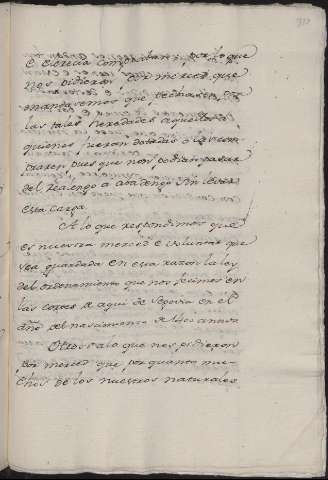 é clerecia compraban, por lo que
nos pidieron por merced que
mandasemos que pechasen
las tales heredades aquellos á
quienes fueron dotadas o las com
praren pues que non podian pasar
del realengo a abadengo sin levar
esta carga.
A lo que respondimos que
es nuestra merced e voluntat que
sea guardada en esta razon la ley
del ordenamiento que nos fecimos en
las cortes de aqui de Segovia en el
año del nascimiento de
Otrosi a lo que nos pidieron
por merced que por quanto mu-
chos de los nuestros naturales